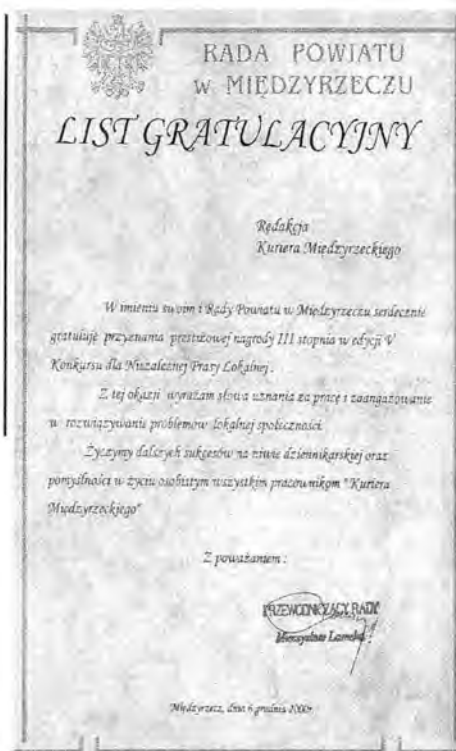 RADA POWIATU
W MIĘDZYRZECZU
LIST GRATULACYJNY
Redakcja
Kuriera Międzyrzeckiego
W imieniu swoim i Rady Powiatu w Międzyrzeczu serdecznie
gratuluję przyznania prestiżowej nagrody III stopnia w edycji V
Konkursu dla Niezależnej Prasy Lokalnej.
Z tej okazji wyrażam słowa uznania za pracę i zaangażowanie
w rozwiązywanie problemów lokalnej społeczności.
Życzymy dalszych sukcesów na niwie dziennikarskiej oraz
pomyślności w życiu osobistym wszystkim pracownikom "Kuriera
Międzyrzeckiego"
Z poważaniem :
PRZEWODNICZĄCY RADY
Międzyrzecz, dnia 6 grudnia 2000r.